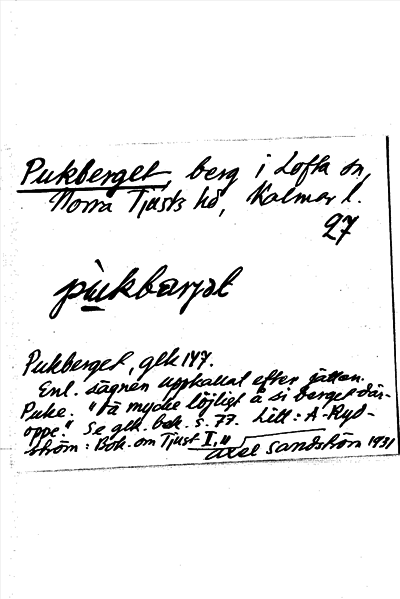 Pukberget, berg i Lofta sn,
Norra Tjusts hd, Kalmar l.
27
pùkbærjət
Pukberget, glk 147.
Enl. sägnen uppkallat efter jätten
Puke. "Få mycke löjligt å si berget där-
oppe" Se glk. bok. s. 77. Litt: A. Ryd-
ström: Bok. om Tjust I,
Axel Sandström 1931